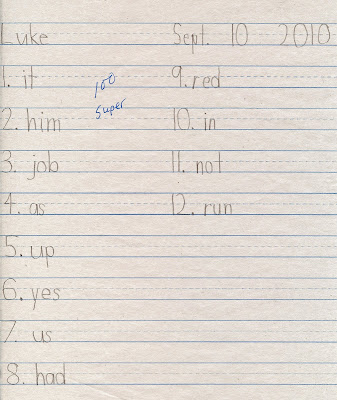 Luke Sept. 10 2010
1. it 9. red
100
2. him 10. in
super
3. job 11. not
4. as 12. run
5. up
6. yes
7. us
8. had